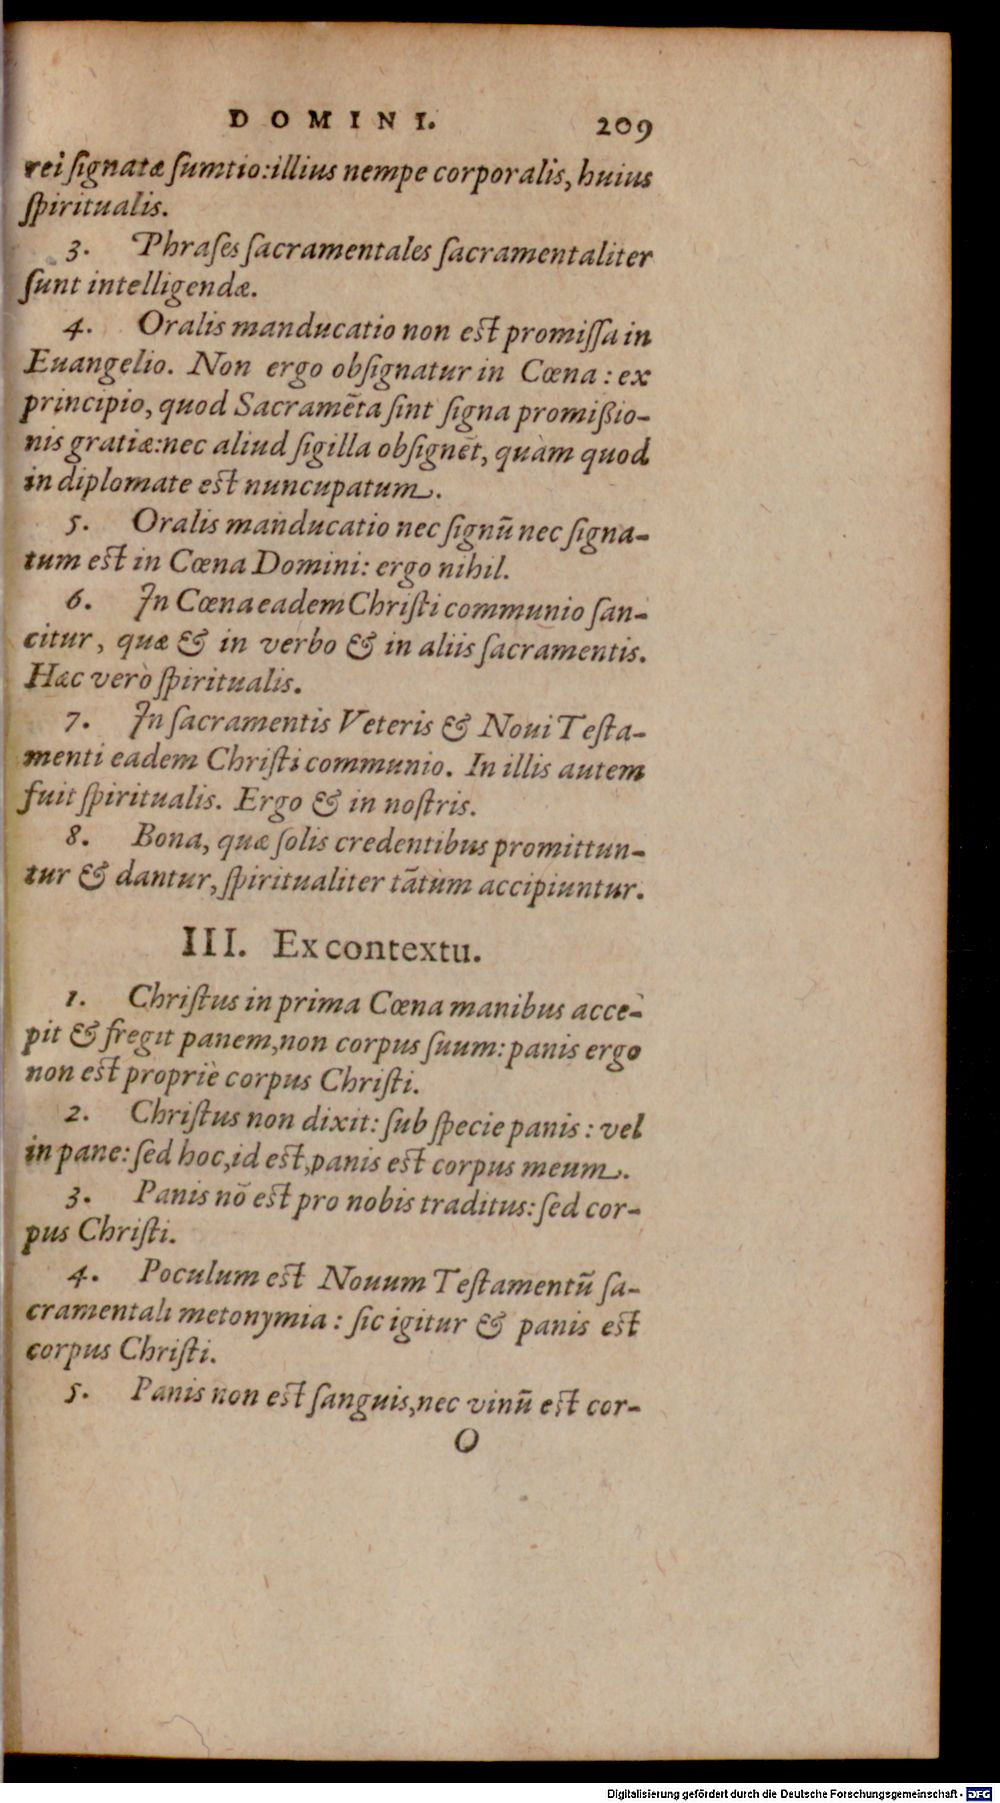 DOMINI. 209
rei ſignatæ ſumtio: illius nempe corporalis, huius
ſpiritualis.
3. Phraſes ſacramentales ſacramentaliter
ſunt intelligendæ.
4. Oralis manducatio non est promiſſa in
Euangelio. Non ergo obſignatur in Cœna: ex
principio, quod Sacramēta ſint ſigna promißio-
nis gratiæ: nec aliud ſigilla obſignēt, quàm quod
in diplomate est nuncupatum.
5. Oralis manducatio nec ſignū nec ſigna-
tum est in Cœna Domini: ergo nihil.
6. In Cœna eadem Chriſti communio ſan-
citur, quæ & in verbo & in aliis ſacramentis.
Hæc verò ſpiritualis.
7. In ſacramentis Veteris & Noui Teſta-
menti eadem Chriſti communio. In illis autem
fuit ſpiritualis. Ergo & in noſtris.
8. Bona, quæ ſolis credentibus promittun-
tur & dantur, ſpiritualiter tātùm accipiuntur.
III. Ex contextu.
1. Chriſtus in prima Cœna manibus acce-
pit & fregit panem, non corpus ſuum: panis ergo
non est propriè corpus Chriſti.
2. Chriſtus non dixit: ſub ſpecie panis: vel
in pane: ſed hoc, id est, panis est corpus meum.
3. Panis nō est pro nobis traditus: ſed cor-
pus Chriſti.
4. Poculum est Nouum Teſtamentū ſa-
cramentali metonymia: ſic igitur & panis est
corpus Chriſti.
5. Panis non est ſanguis, nec vinū est cor-
O
Digitalisierung gefördert durch die Deutsche Forschungsgemeinschaft - DFG